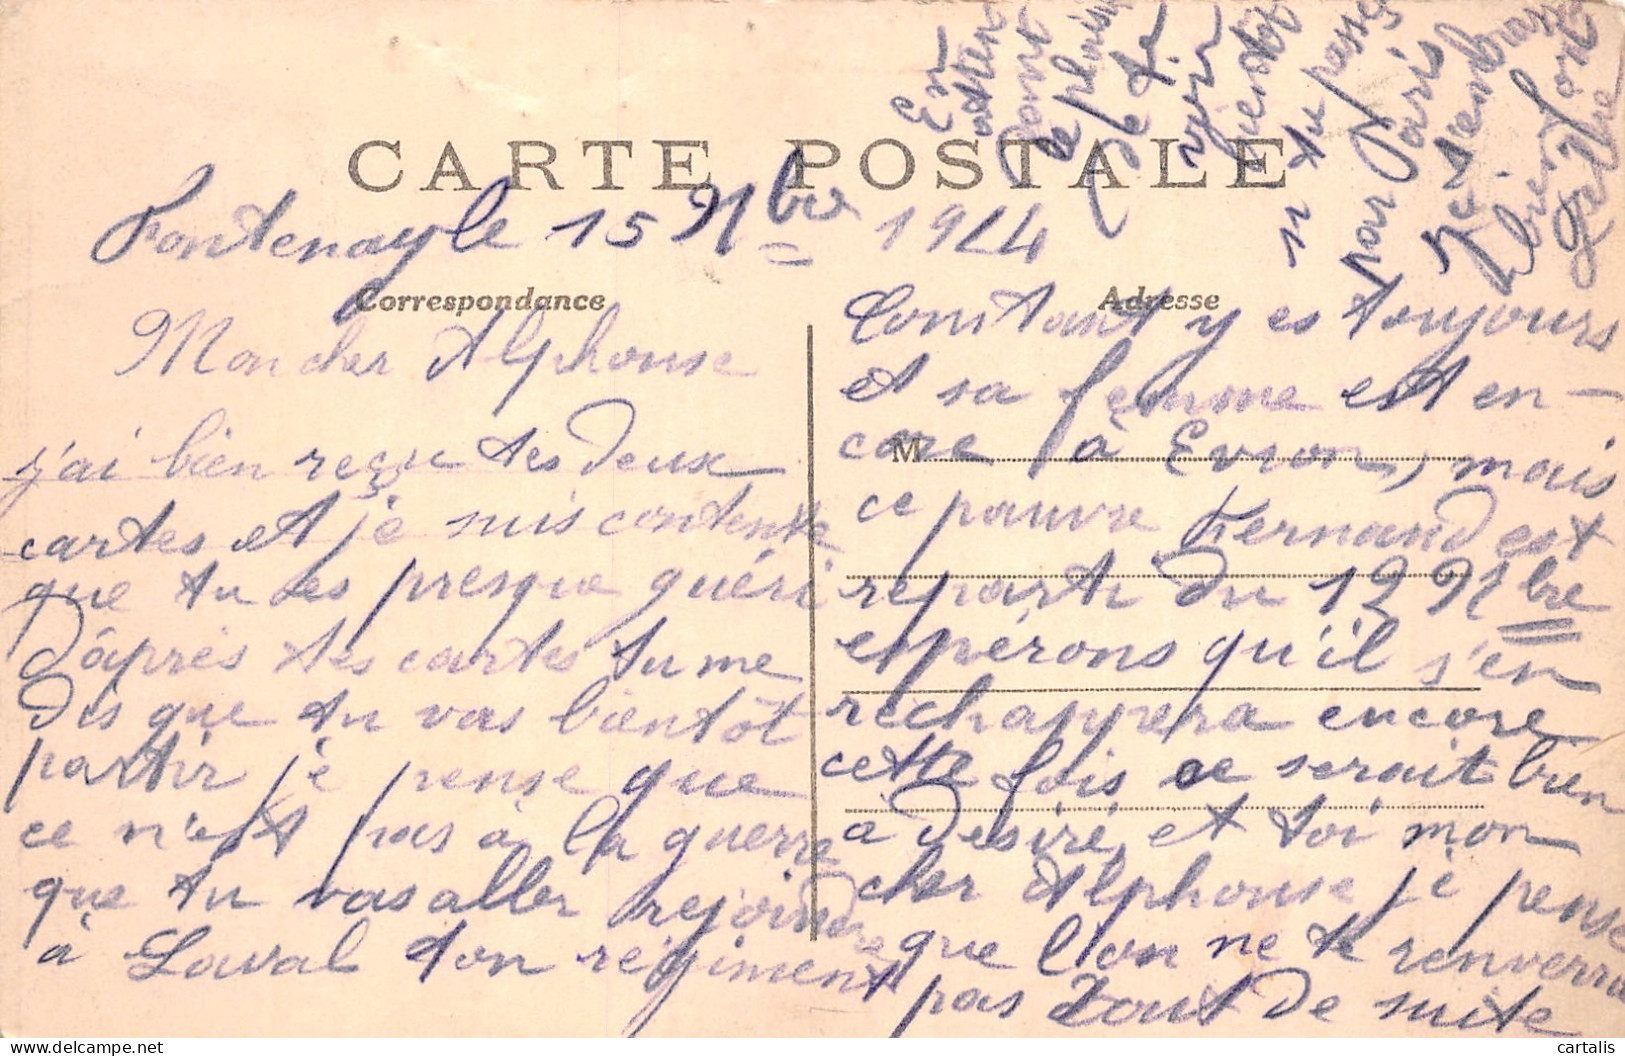 CARTE POSTALE
Fontenay le 15 9bre 1914
Correspondance
Adresse
M
Mon cher Alphonse
j'ai bien reçue tes deux
cartes et je suis contente
que tu es presque guéri
d'après tes cartes tu me
dis que tu vas bientôt
partir je pense que
ce n'est pas à la guerre
que tu vas aller rejoindre
à Laval ton régiment
Constant y es toujours
et sa femme est en-
core à Evron, mais
ce pauvre Fernand est
reparti du 12 9bre
espérons qu'il s'en
rechappera encore
cette fois ce serait bien
a desiré, et toi mon
cher Alphonse je pense
que l'on ne te renverra
pas tout de suite
En
atten
dant
le plaisir
de te
voir
bientôt
si tu passes
par Paris
je t'embrasse
bien fort
cartalis